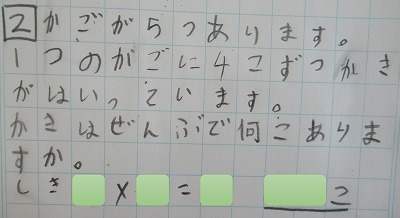 2 かごが5つあります。
1つのかごに4こずつかき
がはいっています。
かきはぜんぶで何こありま
すか。
しき × = こ